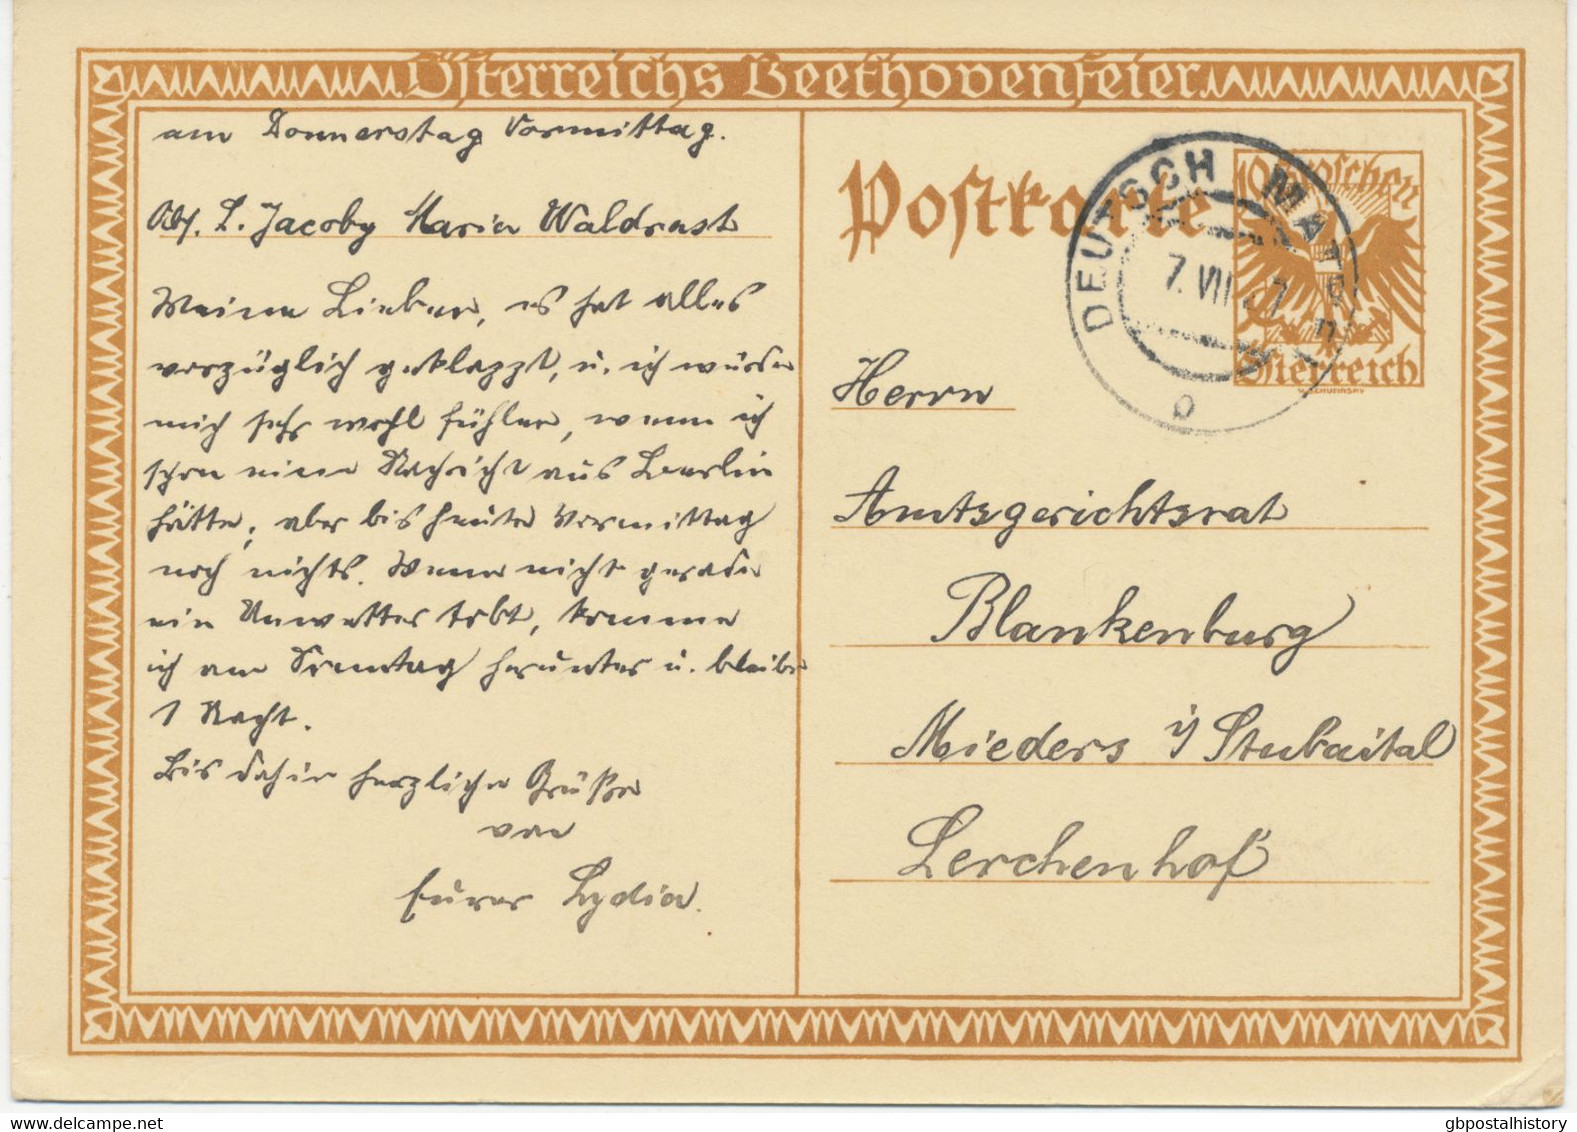 Österreichs Beethovenfeier
am Donnerstag Vormittag.
Abs. L. Jacoby Maria Waldrast
Meine Lieben, es hat alles
vorzüglich geklappt, u. ich würde
mich sehr wohl fühlen, wenn ich
schon eine Nachricht aus Berlin
hätte, aber bis heute Vormittag
noch nichts. Wenn nicht gerade
ein Unwetter tobt, komme
ich am Sonntag herunter u. bleibe
1 Nacht.
Bis dahin herzliche Grüße
von
Eurer Lydia.
Postkarte
10 Groschen
Österreich
DEUTSCH MATREI
7. VII 27
Herrn
Amtsgerichtsrat
Blankenburg
Mieders i/ Stubaital
Lerchenhof
gbpostalhistory